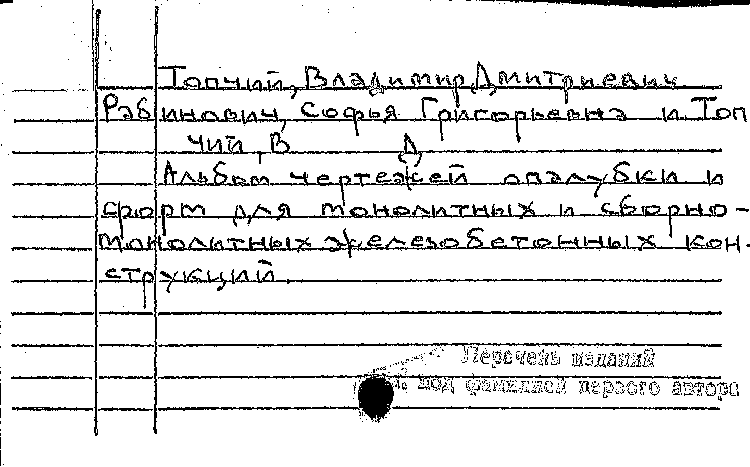 Топчий, Владимир Дмитриевич
Рабинович, Софья Григорьевна и Топ
чий, В Д
Альбом чертежей опалубки и
форм для монолитных и сборно-
монолитных железобетонных кон-
струкций.
Перечень изданий
под фамилией первого автора